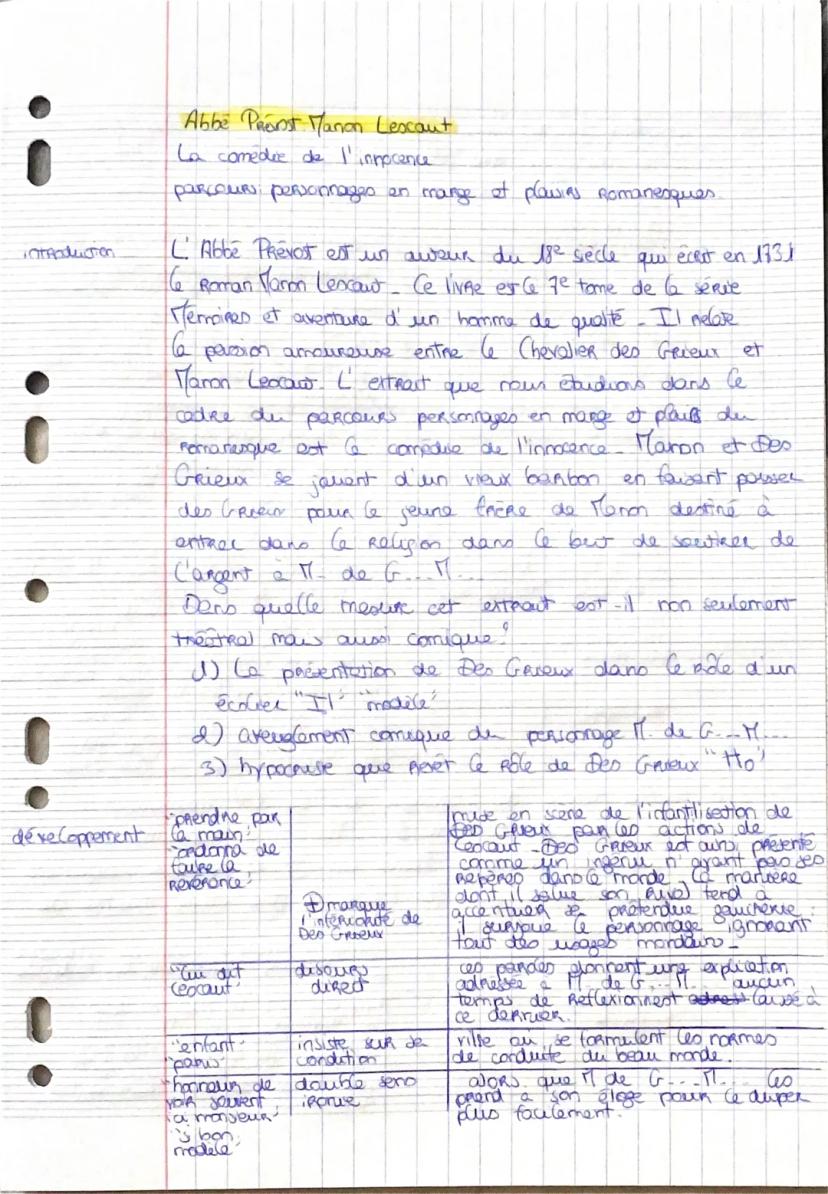 Abbé Prévost Manon Lescaut
La comédie de l'innocence
parcours: personnages en marge et plaisirs Romanesques.
introduction
L'Abbé Prévost est un auteur du 18e siècle qui écrit en 1731
le Roman Manon Lescaut. Ce livre est le 7e tome de la série
Mémoires et aventure d'un homme de qualité. Il relate
la passion amoureuse entre le Chevalier des Grieux et
Manon Lescaut. L'extrait que nous étudions dans le
cadre du parcours personnages en marge et plaisir du
romanesque est la comédie de l'innocence. Manon et Des
Grieux se jouent d'un vieux barbon en faisant passer
des Grieux pour le jeune frère de Manon destiné à
entrer dans la Religion dans le but de soutirer de
l'argent à M. de G...M...
Dans quelle mesure cet extrait est-il non seulement
théâtral mais aussi comique?
1) La présentation de Des Grieux dans le rôle d'un
écolier "Il" "modèle"
2) aveuglement comique du personnage M. de G...M...
3) hypocrisie que revêt le Rôle de Des Grieux "Ho"
développement
"prendre par
la main"
"ordonna de
faire la
Révérence"
⊕ marque
l'infériorité de
Des Grieux
mise en scène de l'infantilisation de
Des Grieux par les actions de
Lescaut. Des Grieux est ainsi présenté
comme un ingénu n'ayant pas ses
Repères dans le monde. La manière
dont il salue son Rival tend à
accentuer sa prétendue gaucherie:
il surjoue le personnage ignorant
tout des usages mondains.
"lui dit
Lescaut"
discours
direct
ces paroles donnent une explication
adressée à M. de G...M... aucun
temps de Reflexion n'est laissé à
ce dernier.
"enfant"
"paris"
insiste sur sa
condition
ville où se formulent les normes
de conduite du beau monde.
"honneur de
voir souvent
à monsieur"
"si bon
modèle"
double sens
ironie
alors que M de G...M... les
prend à son éloge pour le duper
plus facilement.